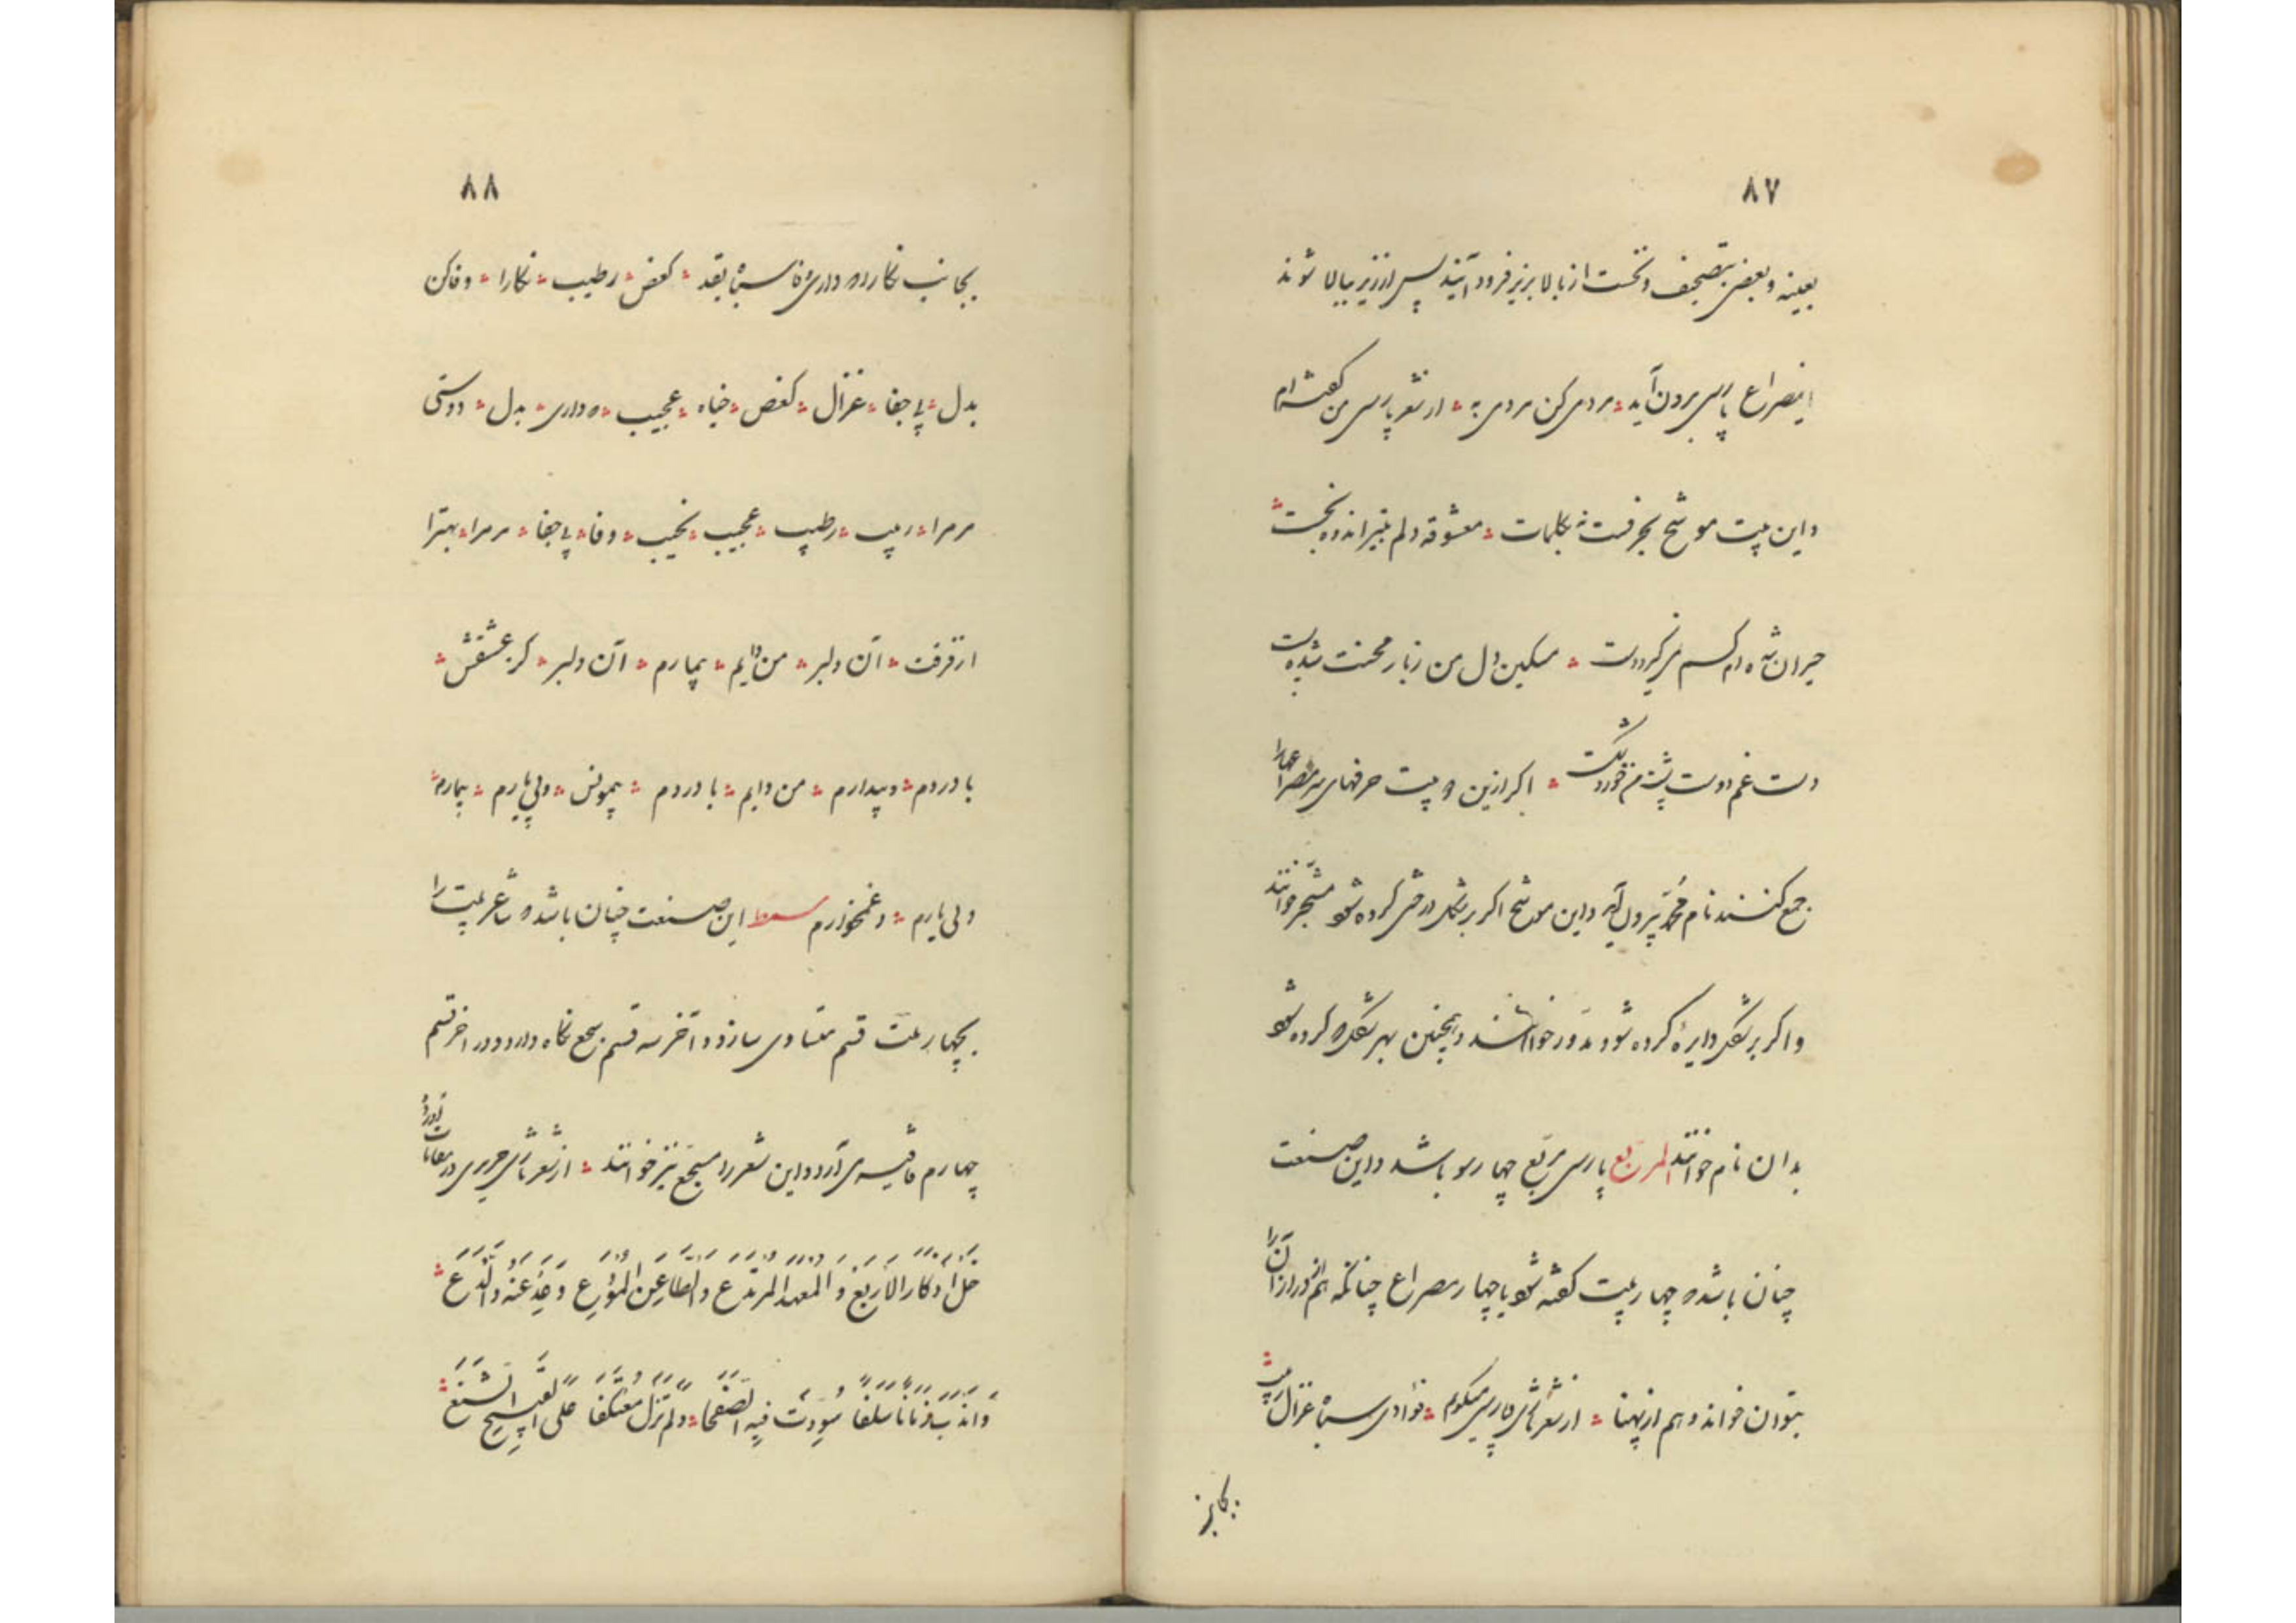 ٨٧
بعینه و بعضی بتصحیف و نخست از بالا بزیر فرود آیند پس از زیر ببالا شوند
اینصراع پارسی برون آید ؞ مردمی کن مردمی به ؞ از شعر پارسی من گفته‌ام
و این بیت موشح بحرفست نه بکلمات ؞ معشوقه دلم بتیر اندوه بخست ؞
حیران شده‌ام کسم نمیگیرد دست ؞ مسکین دل من ز بار محنت شده پست
دست غم دوست پشت من خورد شکست ؞ اکر ازین دو بیت حرفهای سر مصراعها را
جمع کنند نام محمد بیرون آید و این موشح اکر بر شکل درختی کرده شود مشجر خوانند
و اکر بر شکل دایرهٔ کرده شود مدور خوانند و همچنین بهر شکل که کرده شود
بدان نام خوانند المربع پارسی مربع چهار سو باشد و این صنعت
چنان باشد که چهار بیت کفته شود یا چهار مصراع چنانکه هم از درازا آنرا
بتوان خواند و هم از پهنا ؞ از شعر تازی و پارسی میکویم ؞ فؤادی سباه غزال ربیب ؞
بجانب
٨٨
بجانب نکارا که داری سباه بقد ؞ کغصن ؞ رطیب ؞ نکارا ؞ وفا کن
بدل ؞ بی جفا ؞ غزال ؞ کغصن ؞ جناه ؞ عجیب ؞ که داری ؞ بدل ؞ دوستی
مر مرا ؞ ربیب ؞ رطیب ؞ عجیب ؞ نجیب ؞ وفا ؞ بی جفا ؞ مر مرا ؞ بهترا
از فرقت ؞ آن دلبر ؞ من دایم ؞ بیمارم ؞ آن دلبر ؞ کز عشقش ؞
با دردم ؞ و بیدارم ؞ من دایم ؞ با دردم ؞ بیمونس ؞ و بی یارم ؞ بیمارم ؞
و بی یارم ؞ و غمخوارم مسمط این صنعت چنان باشد که شاعر بیت را
بچهار قسم متساوی سازد و در آخر سه قسم سجع نکاه دارد و در آخر قسم
چهارم قافیه می‌آرد و این شعر را مسجع نیز خوانند ؞ از شعر تازی حریری در مقامات آورد
خَلِّ ادِّكَارَ الْاَرْبُعِ وَ الْمَعْهَدِ الْمُرْتَبَعِ وَالظَّاعِنِ الْمُوَدِّعِ وَعَدِّ عَنْهُ وَدَعِ ؞
وَانْدُبْ زَمَانًا سَلَفَا سَوَّدْتَ فِيهِ الصُّحُفَا ؞ وَلَمْ تَزَلْ مُعْتَكِفًا عَلَى الْقَبِيحِ الشَّنِعِ ؞